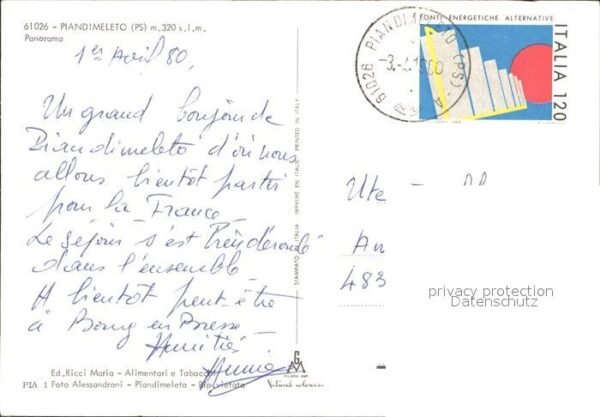 61026 - PIANDIMELETO (PS) m.320 s.l.m.
Panorama
1er Avril 80,
Un grand bonjour de
Piandimeleto d'où nous
allons bientôt partir
pour la France.
Le séjour s'est
dans l'ensemble
A bientôt peut-être
à Bourg en Bresse
Amitiés
Annie
Ed. Ricci Maria - Alimentari e Tabacchi
PIA 1 Foto Alessandroni - Piandimeleto - Riprovietata
STAMPATO IN ITALIA IMPRIMÉ EN ITALIE PRINTED IN ITALY
61026 PIANDIMELETO (PS)
FONTI ENERGETICHE ALTERNATIVE
ITALIA 120
Ute
An
483
privacy protection
Datenschutz